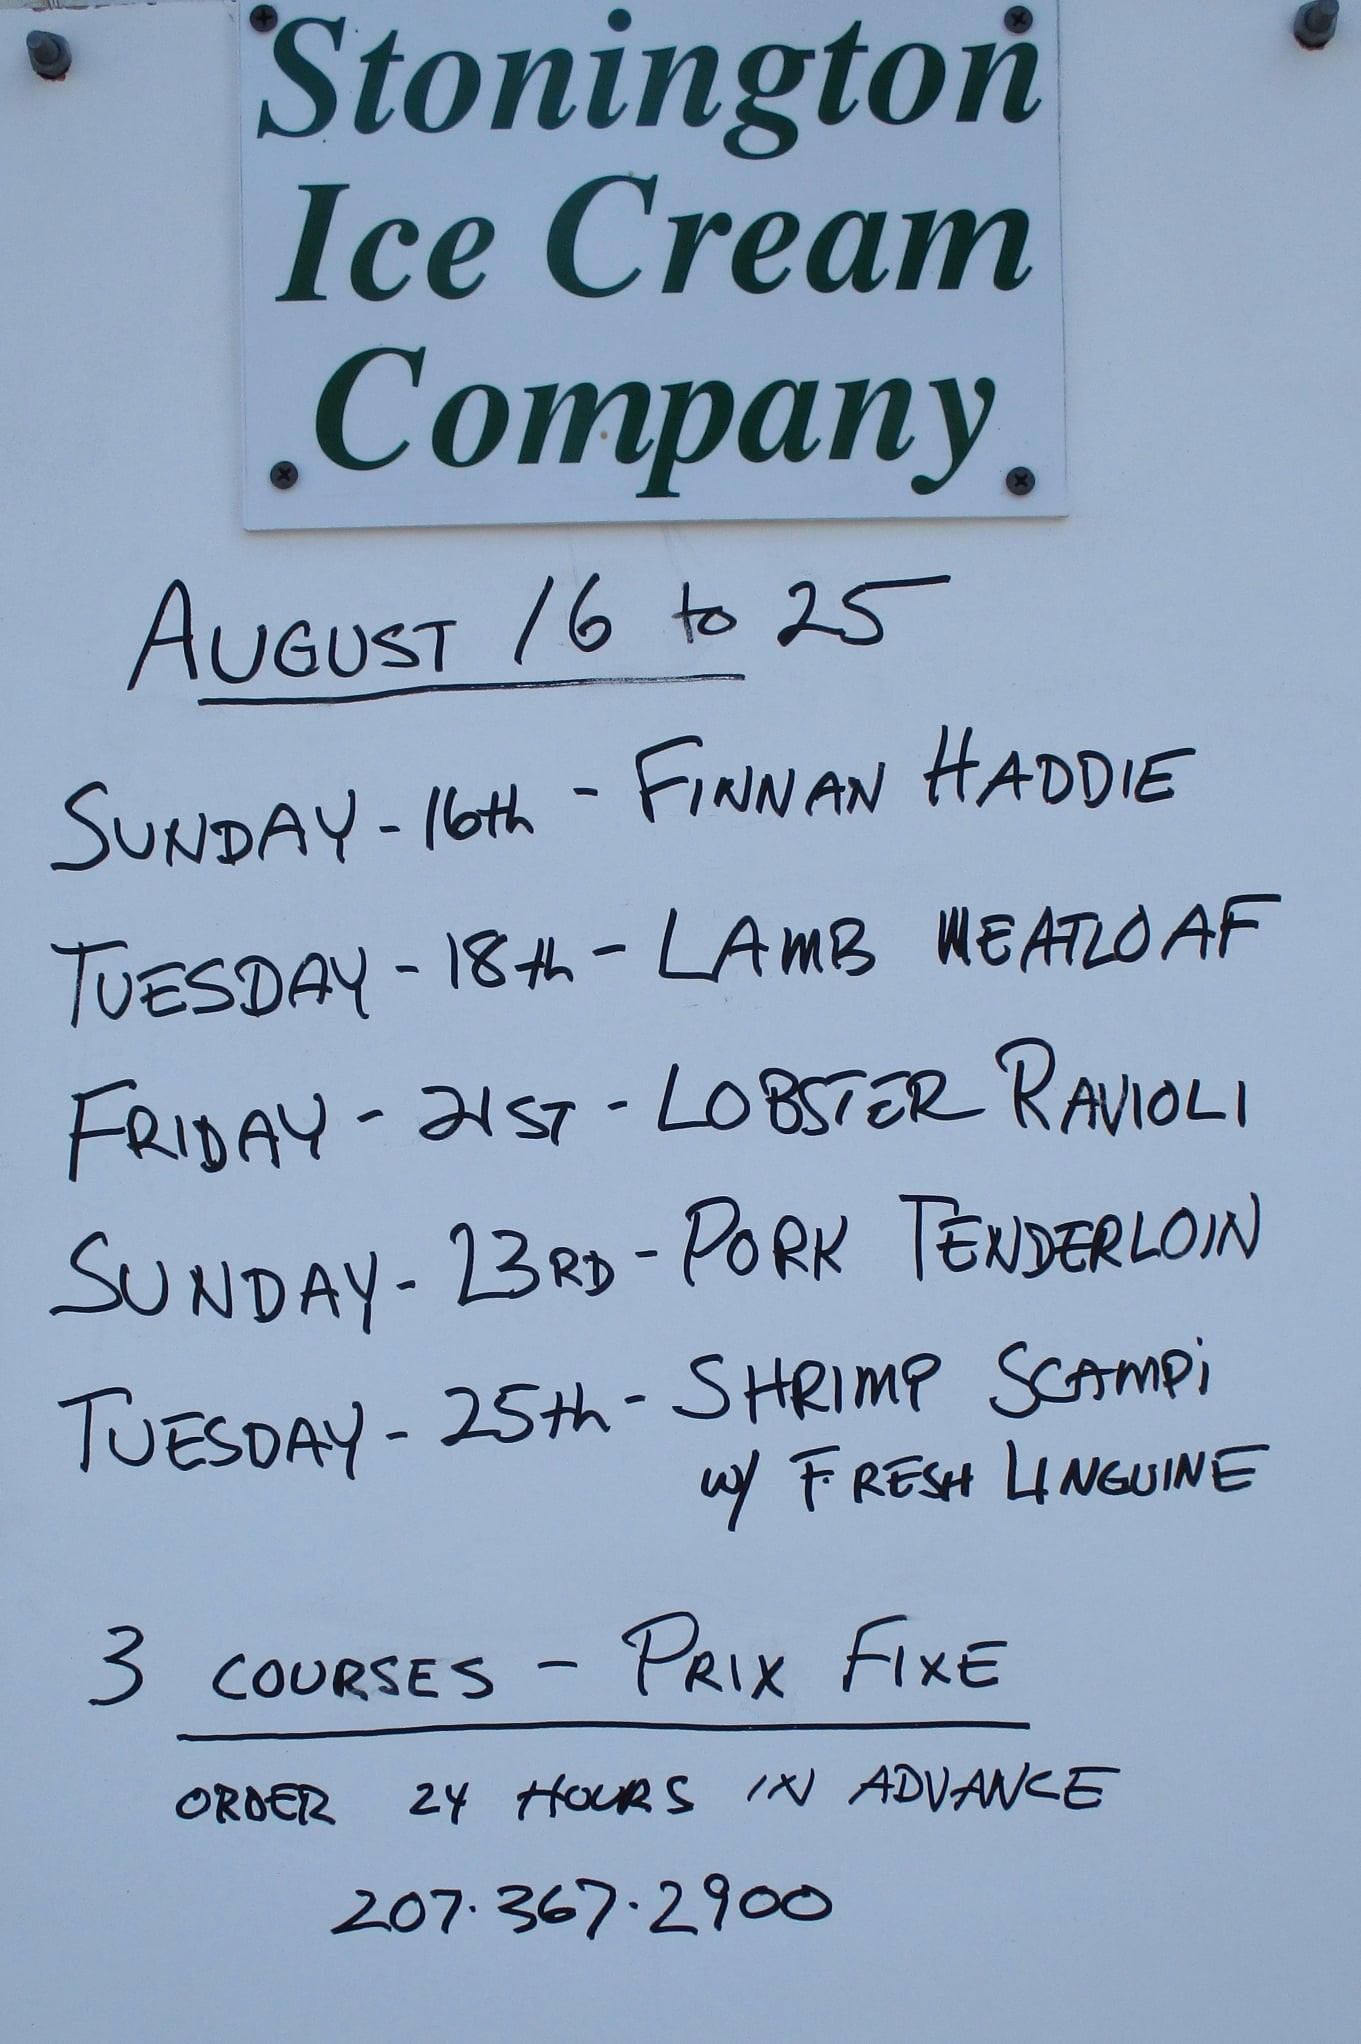 Stonington
Ice Cream
Company
AUGUST 16 to 25
SUNDAY - 16th - FINNAN HADDIE
TUESDAY - 18th - LAMB MEATLOAF
FRIDAY - 21ST - LOBSTER RAVIOLI
SUNDAY - 23RD - PORK TENDERLOIN
TUESDAY - 25th - SHRIMP SCAMPi
w/ FRESH LINGUINE
3 COURSES - PRIX FIXE
ORDER 24 HOURS IN ADVANCE
207.367.2900